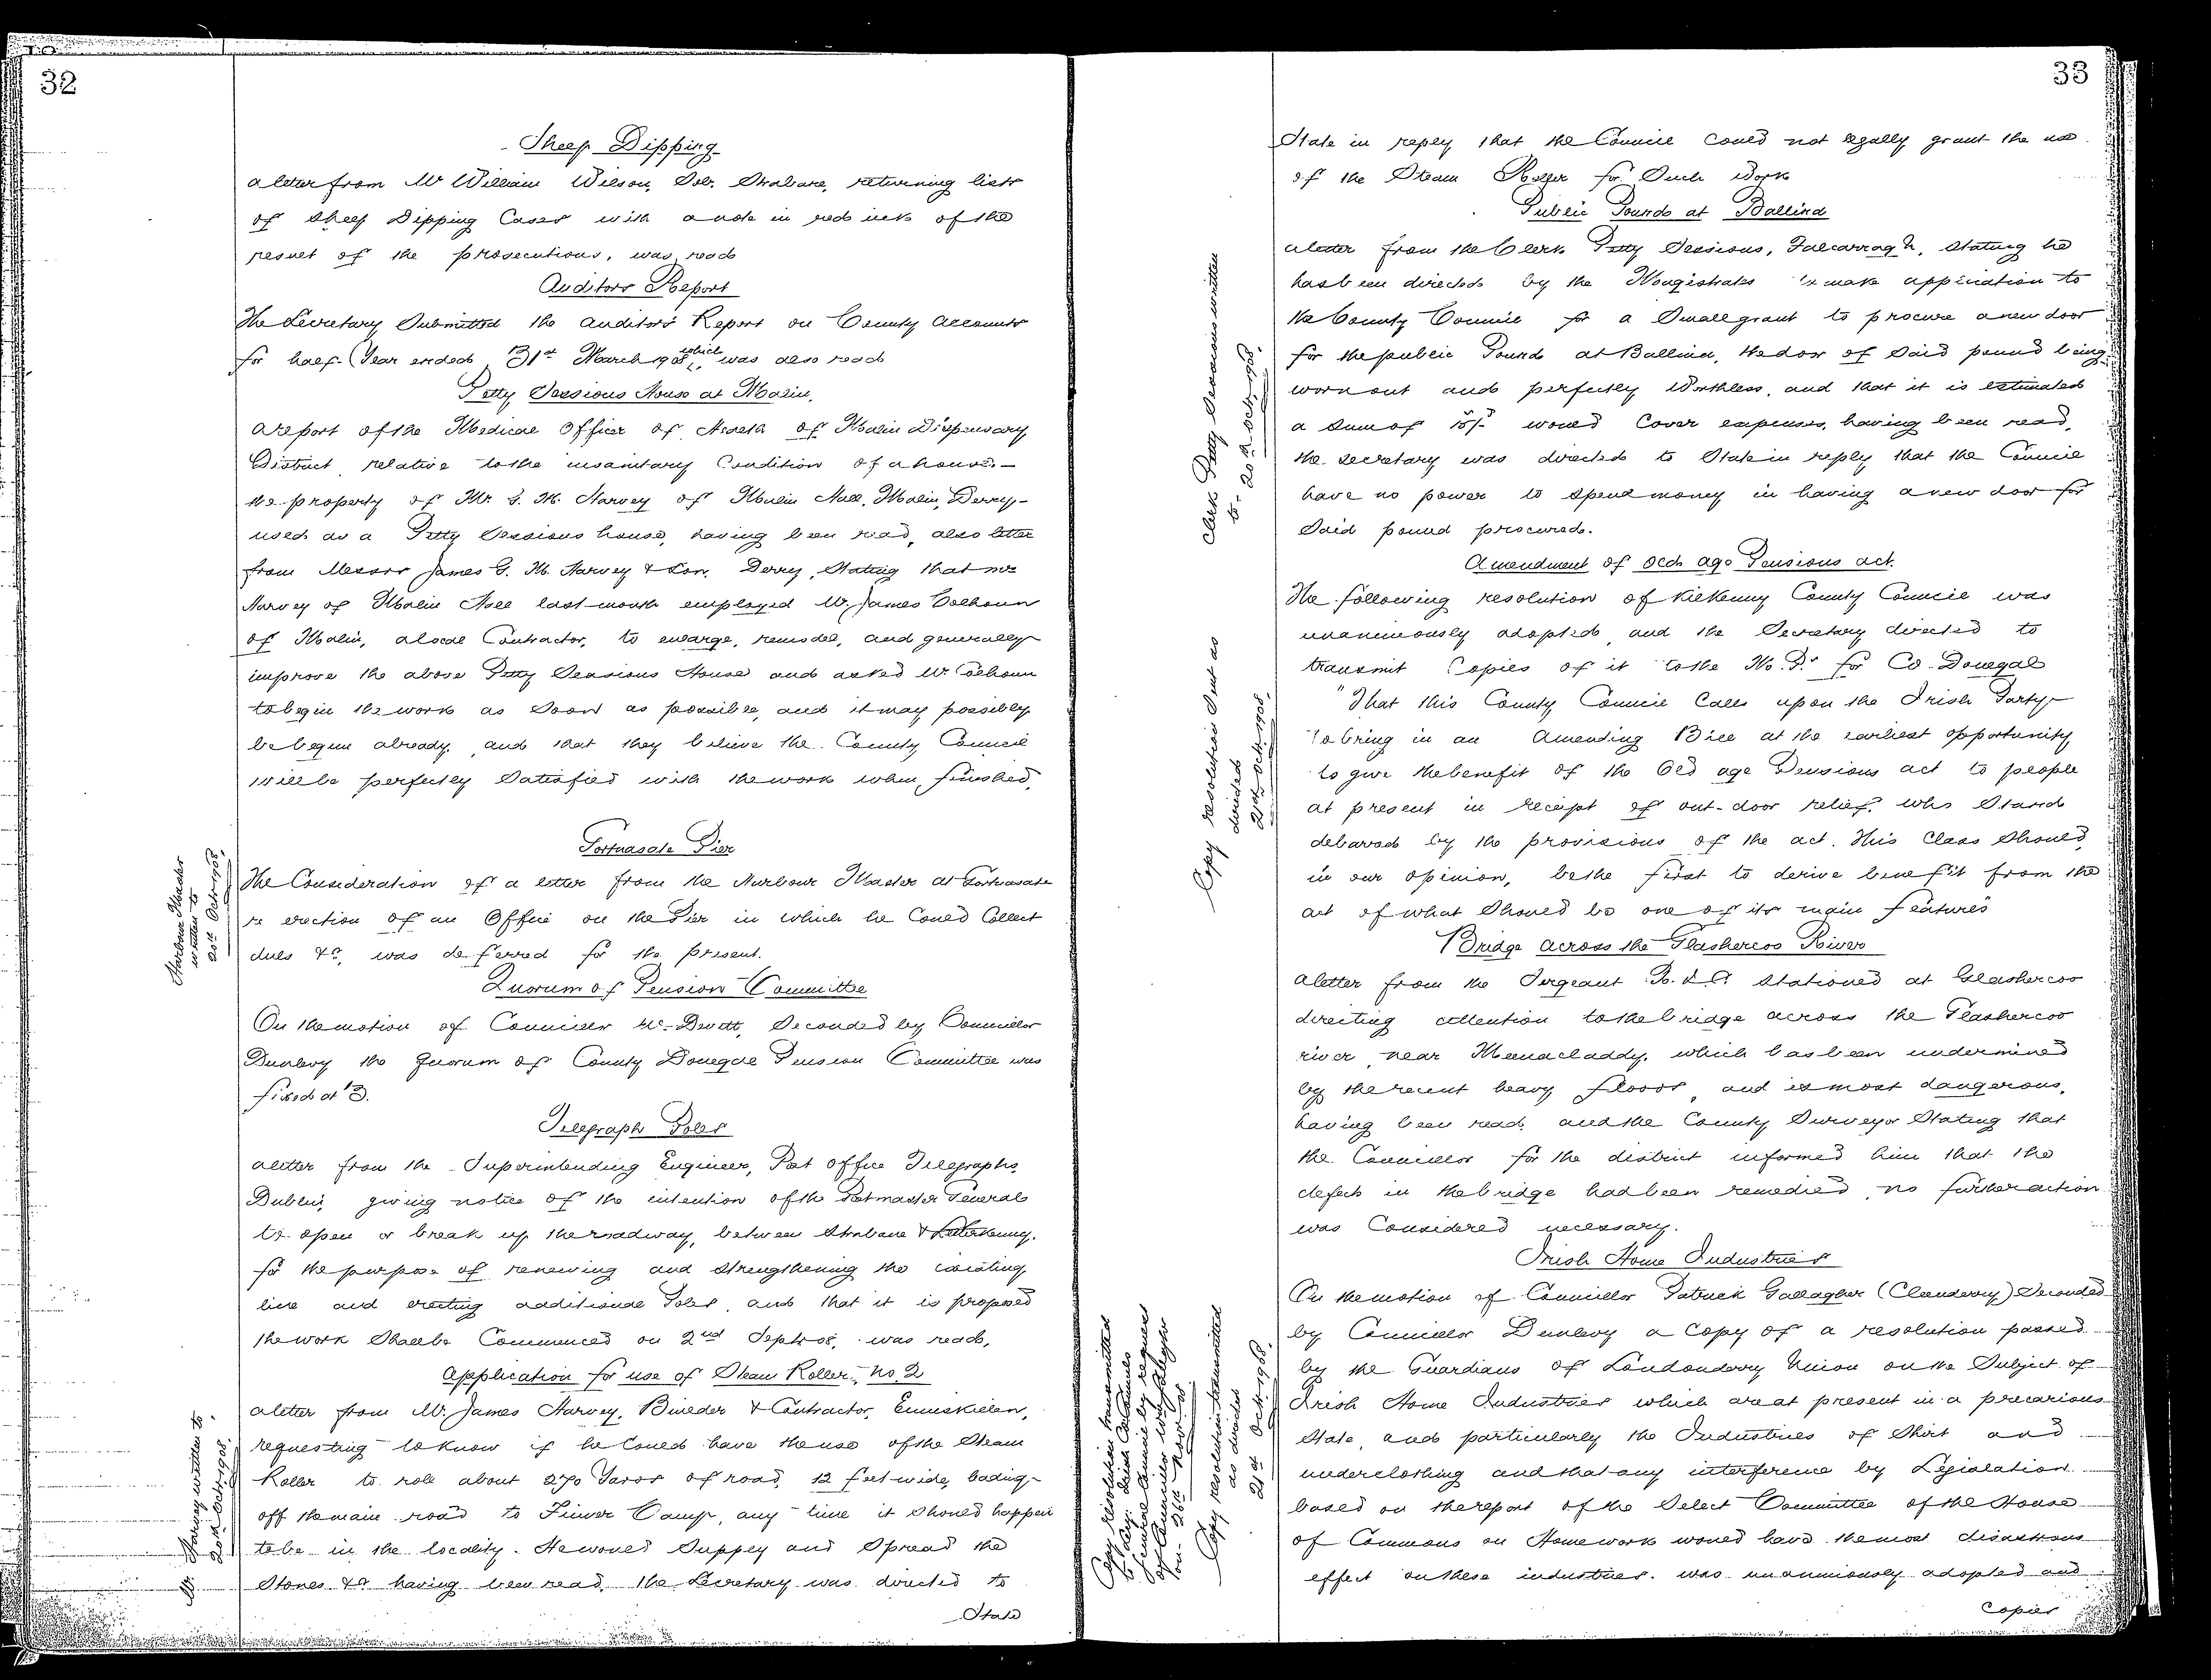 32
Sheep Dipping
a letter from Mr William Wilson, Sol. Strabane, returning lists
of Sheep Dipping Cases with a note in red ink of the
result of the prosecutions, was read
Auditors Report
The Secretary Submitted the Auditors Report on County Accounts
for half-Year ended 31st March 1908, which was also read
Petty Sessions House at Malin.
A report of the Medical Officer of Health of Malin Dispensary
District relative to the insanitary Condition of a house -
the property of Mr. G. M. Harvey of Malin Hall, Malin, Derry, -
used as a Petty Sessions house, having been read, also letter
from Messrs James G. M. Harvey & Son, Derry, Stating that Mr
Harvey of Malin Hall last month employed Mr. James Colhoun
of Malin, a local Contractor, to enlarge, remodel, and generally
improve the above Petty Sessions House and asked Mr Colhoun
to begin the work as Soon as possible, and it may possibly
be begun already, and that they believe the County Council
will be perfectly Satisfied with the work when finished.
Portnasale Pier
The Consideration of a letter from the Harbour Master at Portnasale
re erection of an Office on the Pier in which he Could Collect
dues &c, was deferred for the present.
Harbour Master
written to
20th Oct. 1908.
Quorum of Pension Committee
On the motion of Councillor McDevitt, Seconded by Councillor
Dunlevy the quorum of County Donegal Pension Committee was
fixed at 3.
Telegraph Poles
a letter from the Superintending Engineer, Post Office Telegraphs
Dublin, giving notice of the intention of the Postmaster General
to open or break up the roadway, between Strabane & Letterkenny,
for the purpose of renewing and Strengthening the existing
line and erecting additional Poles, and that it is proposed
the work Shall be Commenced on 2nd Sept. 08, was read.
Application for use of Steam Roller, No. 2
a letter from Mr. James Harvey, Builder & Contractor, Enniskillen,
requesting to know if he Could have the use of the Steam
Roller to roll about 270 Yards of road, 12 feet wide, leading -
off the main road to Finner Camp, any time it Should happen
to be in the locality. He would Supply and Spread the
Stones &c having been read, the Secretary was directed to
State
Mr. Harvey written to.
20th Oct. 1908.
33
State in reply that the Council Could not legally grant the use
of the Steam Roller for Such Work
Public Pound at Ballina
a letter from the Clerk Petty Sessions, Falcarragh, Stating he
has been directed by the Magistrates to make application to
the County Council for a Small grant to procure a new door
for the public Pound at Ballina, the door of Said pound being
worn out and perfectly Worthless, and that it is estimated
a Sum of 15/- would Cover expenses, having been read,
the Secretary was directed to State in reply that the Council
have no power to Spend money in having a new door for
Said pound procured.
Clerk Petty Sessions written
to - 20th Oct. 1908.
Amendment of Old Age Pensions Act.
The following resolution of Kilkenny County Council was
unanimously adopted and the Secretary directed to
transmit Copies of it to the M.P.s for Co. Donegal
"That this County Council Calls upon the Irish Party
to bring in an Amending Bill at the earliest opportunity
to give the benefit of the Old age Pensions act to people
at present in receipt of out-door relief, who Stand
debarred by the provisions of the act. This Class Should,
in our opinion, be the first to derive benefit from the
act of what Should be one of its main features"
Copy resolution Sent as
directed
21st Oct. 1908.
Bridge across the Glashercoo River
a letter from the Sergeant R.I.C. Stationed at Glashercoo
directing attention to the bridge across the Glashercoo
river near Meenacladdy, which has been undermined
by the recent heavy floods and is most dangerous,
having been read, and the County Surveyor Stating that
the Councillor for the district informed him that the
defect in the bridge had been remedied, no further action
was Considered necessary.
Irish Home Industries
On the motion of Councillor Patrick Gallagher (Cleendra) Seconded
by Councillor Dunlevy a Copy of a resolution passed
by the Guardians of Londonderry Union on the Subject of
Irish Home Industries which are at present in a precarious
State, and particularly the Industries of Shirt and
underclothing and that any interference by Legislation
based on the report of the Select Committee of the House
of Commons on Homework would have the most disastrous
effect on these industries, was unanimously adopted and
Copies
Copy resolution transmitted
as directed
21st Oct. 1908.
Copy resolution transmitted